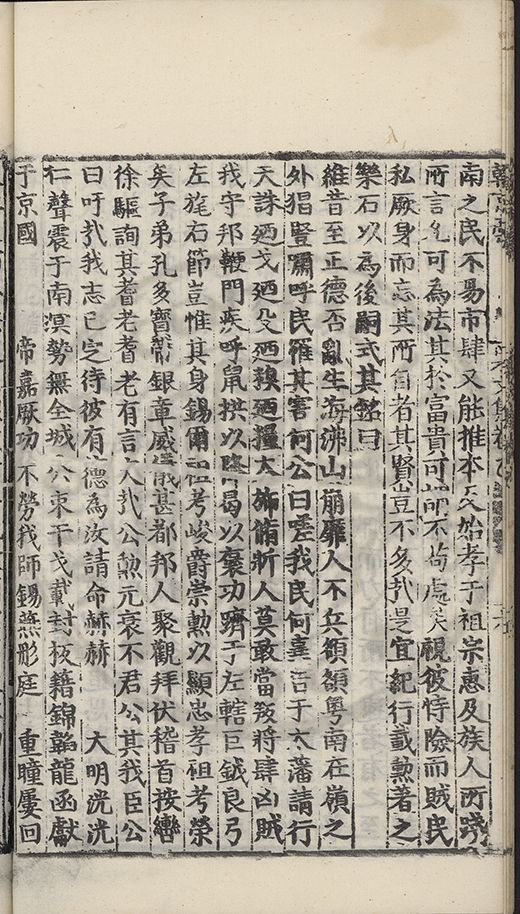 南之民不易市肆又能推本之始孝于祖宗惠及族人所踐
所言凡可為法其於富貴可謂不苟處矣視彼恃險而賊民
私厥身而忘其所自者其賢豈不多哉是宜紀行載勲著之
樂石以為後嗣式其銘曰
維昔至正德否亂生海沸山崩靡人不兵額額粤南在嶺之
外猖豎嘯呼民罹其害何公曰嗟我民何辜告于大藩請行
天誅廼戈廼殳廼糗廼糧大旆脩旂人莫敢當叛將肆凶賊
我守邦轅門疾呼鼠拱以降曷以褒功躋于左轄巨鉞良弓
左旄右節豈惟其身錫爾祖考峻爵崇勲以顯忠孝祖考榮
矣子弟孔多寶帶銀章威儀甚都邦人聚觀拜伏稽首按轡
徐驅詢其耆老耆老有言大哉公勲元衰不君公其我臣公
曰吁哉我志已定待彼有德為汝請命赫赫 大明洸洸
仁聲震于南溟勢無全城公束干戈載封板籍錦韜龍函獻
于京國 帝嘉厥功不勞我師錫燕彤庭 重瞳屢回